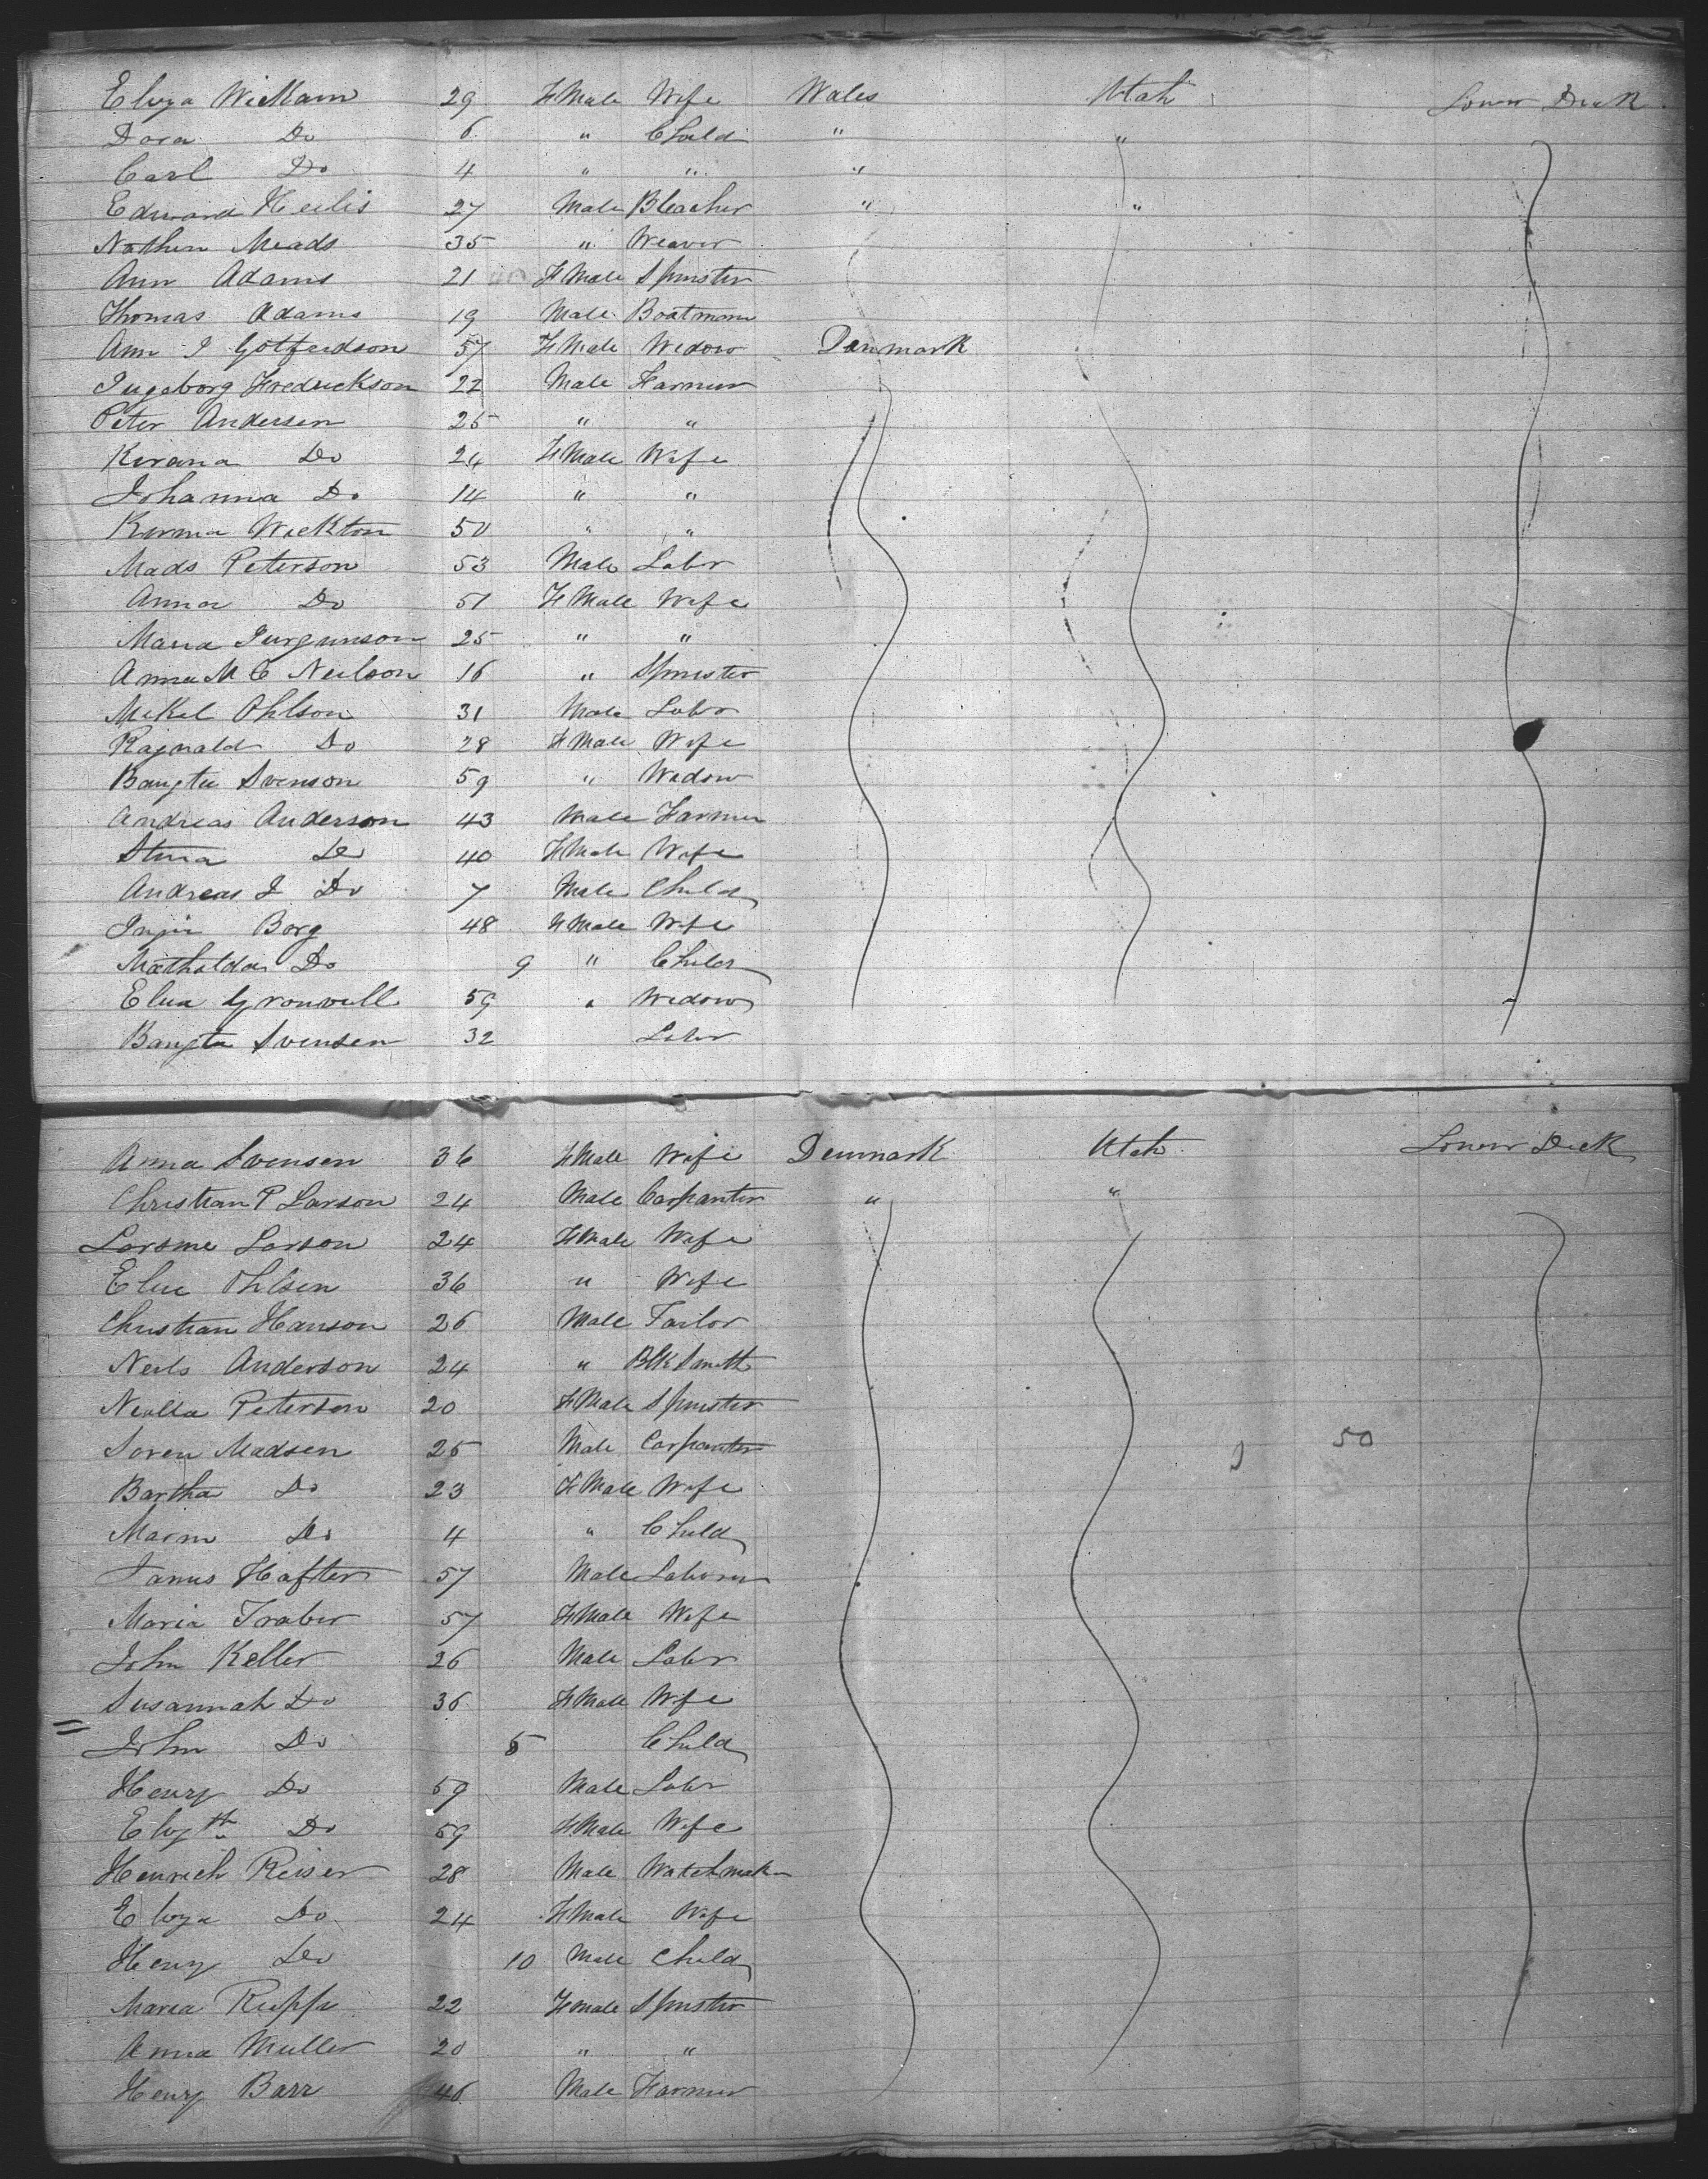 Elyza Wickam 29 FMale Wife Wales Utah Lower Deck
Dora Do 6 " Child " "
Carl Do 4 " " "
Edward Heilis 27 Male Bleacher " "
Nathen Meads 35 " Weaver
Ann Adams 21 FMale Spinster
Thomas Adams 19 Male Boatman
Ann J Gotfredson 57 FMale Widow Denmark
Ingeborg Fredrickson 22 Male Farmer
Peter Andersen 25 " "
Kirana Do 24 FMale Wife
Johanna Do 14 " "
Karma Wickton 50 " "
Mads Peterson 53 Male Labr
Anna Do 51 FMale Wife
Maria Jurgunson 25 " "
Anna M C Neilson 16 " Spinster
Mikel Ohlson 31 Male Labr
Ragnald Do 28 FMale Wife
Bangta Svenson 59 " Widow
Andreas Anderson 43 Male Farmer
Stina Do 40 FMale Wife
Andreas J Do 7 Male Child
Injir Borg 48 FMale Wife
Mathalda Do 9 " Child
Elna Gronvall 59 " Widow
Bangta Svensen 32 Labr
Anna Svensen 36 FMale Wife Denmark Utah Lower Deck
Christian P Larson 24 Male Carpanter " "
Larsme Larson 24 FMale Wife
Elue Ohlsen 36 " Wife
Christian Hanson 26 Male Tailor
Neils Anderson 24 " BlkSmith
Nealla Peterson 20 FMale Spinster
Soren Madsen 25 Male Carpanter 50
Bartha Do 23 FMale Wife
Marm Do 4 " Child
Janus Hafter 57 Male Laborer
Maria Traber 57 FMale Wife
John Keller 26 Male Labr
Susannah Do 36 FMale Wife
John Do 5 Child
Henry Do 59 Male Labr
Elyzth Do 59 FMale Wife
Henrich Reiser 28 Male Watchmaker
Elyza Do 24 FMale Wife
Henry Do 10 Male Child
Maria Ruppe 22 Female Spinster
Anna Muller 20 " "
Henry Barr 46 Male Farmer